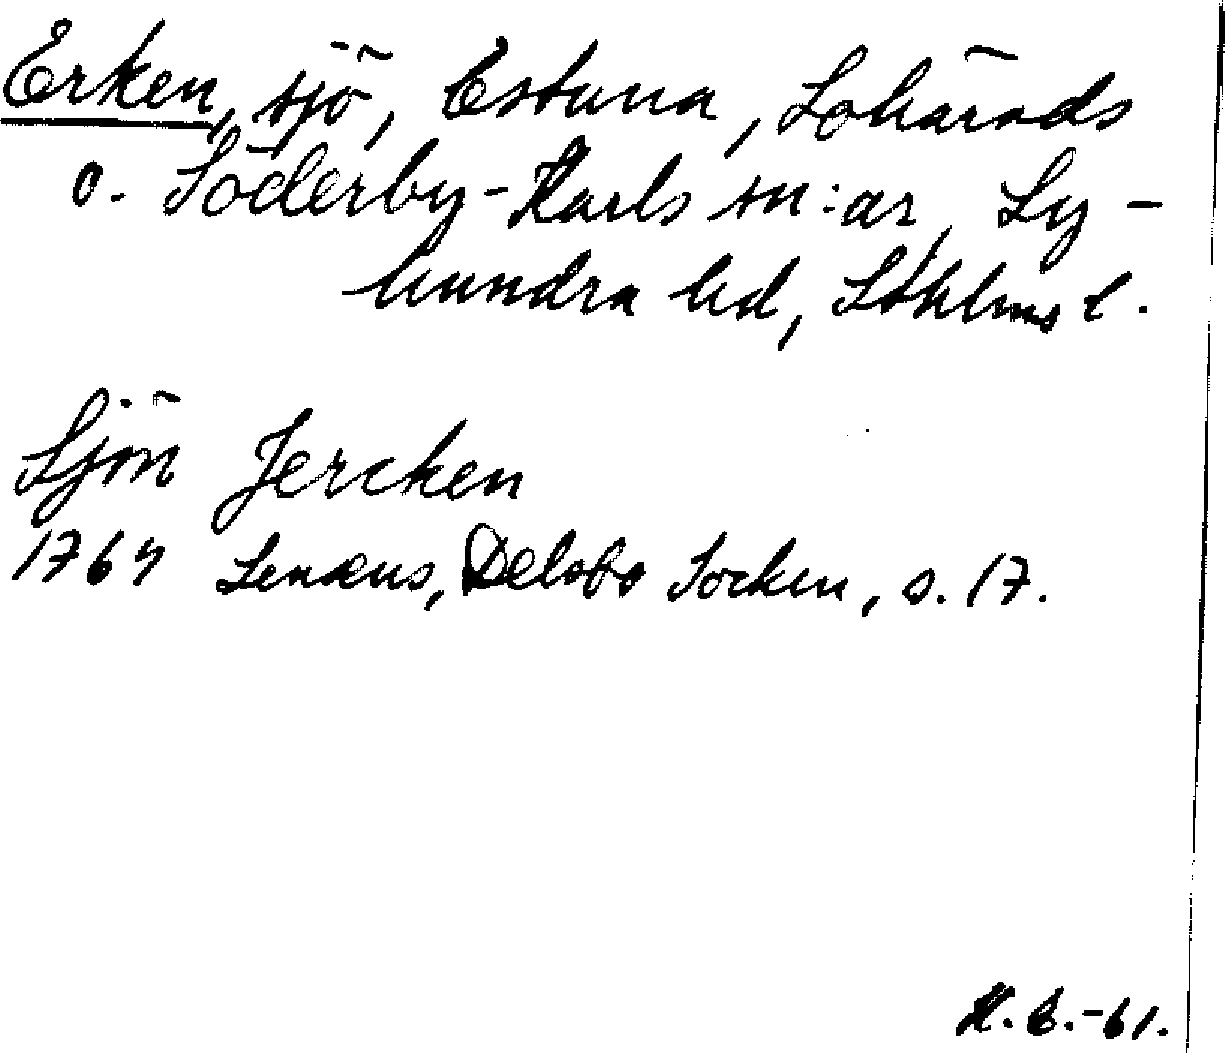 Erken, sjö, Estuna, Lohärads
o. Söderby-Karls sn:ar, Ly-
hundra hd, Sthlms l.
Sjön Jercken
1764 Lenæus, Delsbo Socken, s. 17.
H.E.-61.